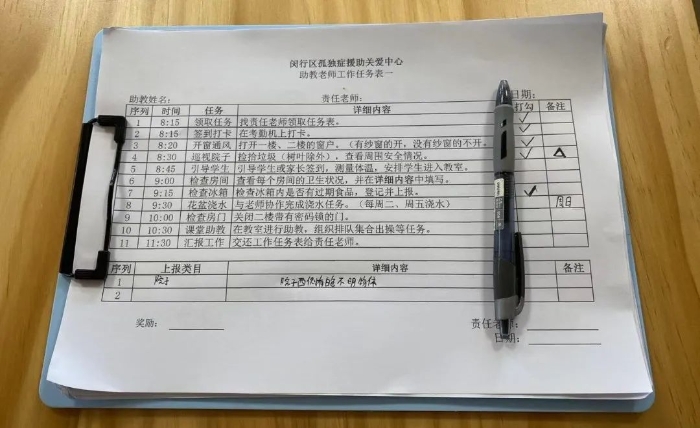 闵行区孤独症援助关爱中心
助教老师工作任务表一
助教姓名： 责任老师： 日期：
序列 时间 任务 详细内容 打勾 备注
1 8:15 领取任务 找责任老师领取任务表。 ✓
2 8:15 签到打卡 在考勤机上打卡。 ✓
3 8:20 开窗通风 打开一楼、二楼的窗户。（有纱窗的开，没有纱窗的不开。 ✓
4 8:30 巡视院子 捡拾垃圾（树叶除外），查看周围安全情况。 ✓ △
5 8:45 引导学生 引导学生或家长签到，测量体温，安排学生进入教室。
6 9:00 检查房间 查看每个房间的卫生状况，并在详细内容中填写。
7 9:15 检查冰箱 检查冰箱内是否有过期食品，登记并上报。 ✓
8 9:30 花盆浇水 与老师协作完成浇水任务。（每周二、周五浇水）
9 10:00 检查房门 关闭二楼带有密码锁的门。
10 10:30 课堂助教 在教室进行助教，组织排队集合出操等任务。
11 11:30 汇报工作 交还工作任务表给责任老师。
序列 上报类目 详细内容 备注
1 院子 院子西侧墙 不明物体
2
奖励： 责任老师：
日期：